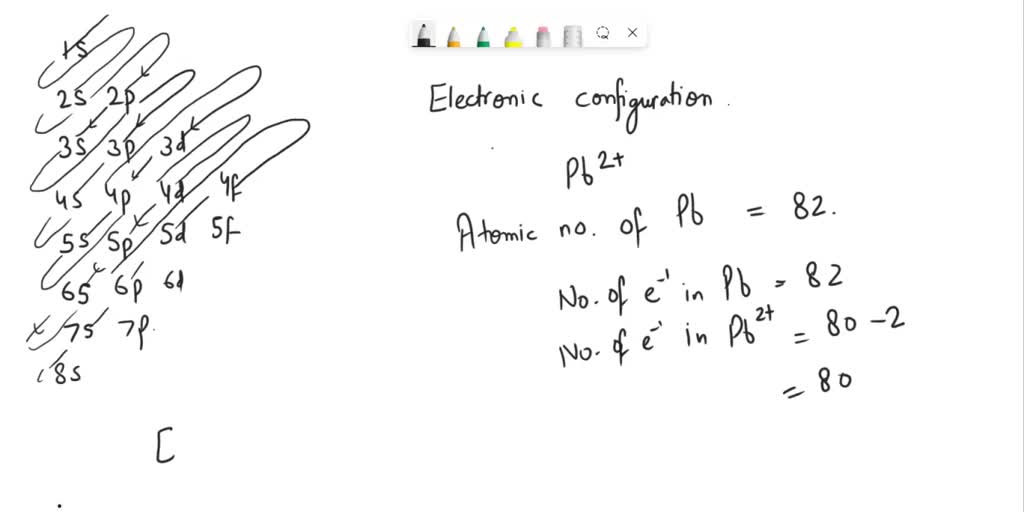 1s
2s 2p
3s 3p 3d
4s 4p 4d 4f
5s 5p 5d 5f
6s 6p 6d
7s 7p.
8s
[
Electronic configuration.
Pb²⁺
Atomic no. of Pb = 82.
No. of e⁻¹ in Pb = 82
No. of e⁻¹ in Pb²⁺ = 80 - 2
= 80